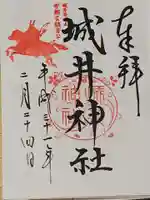 奉拝
城井神社
平成三十一年
二月二十四日